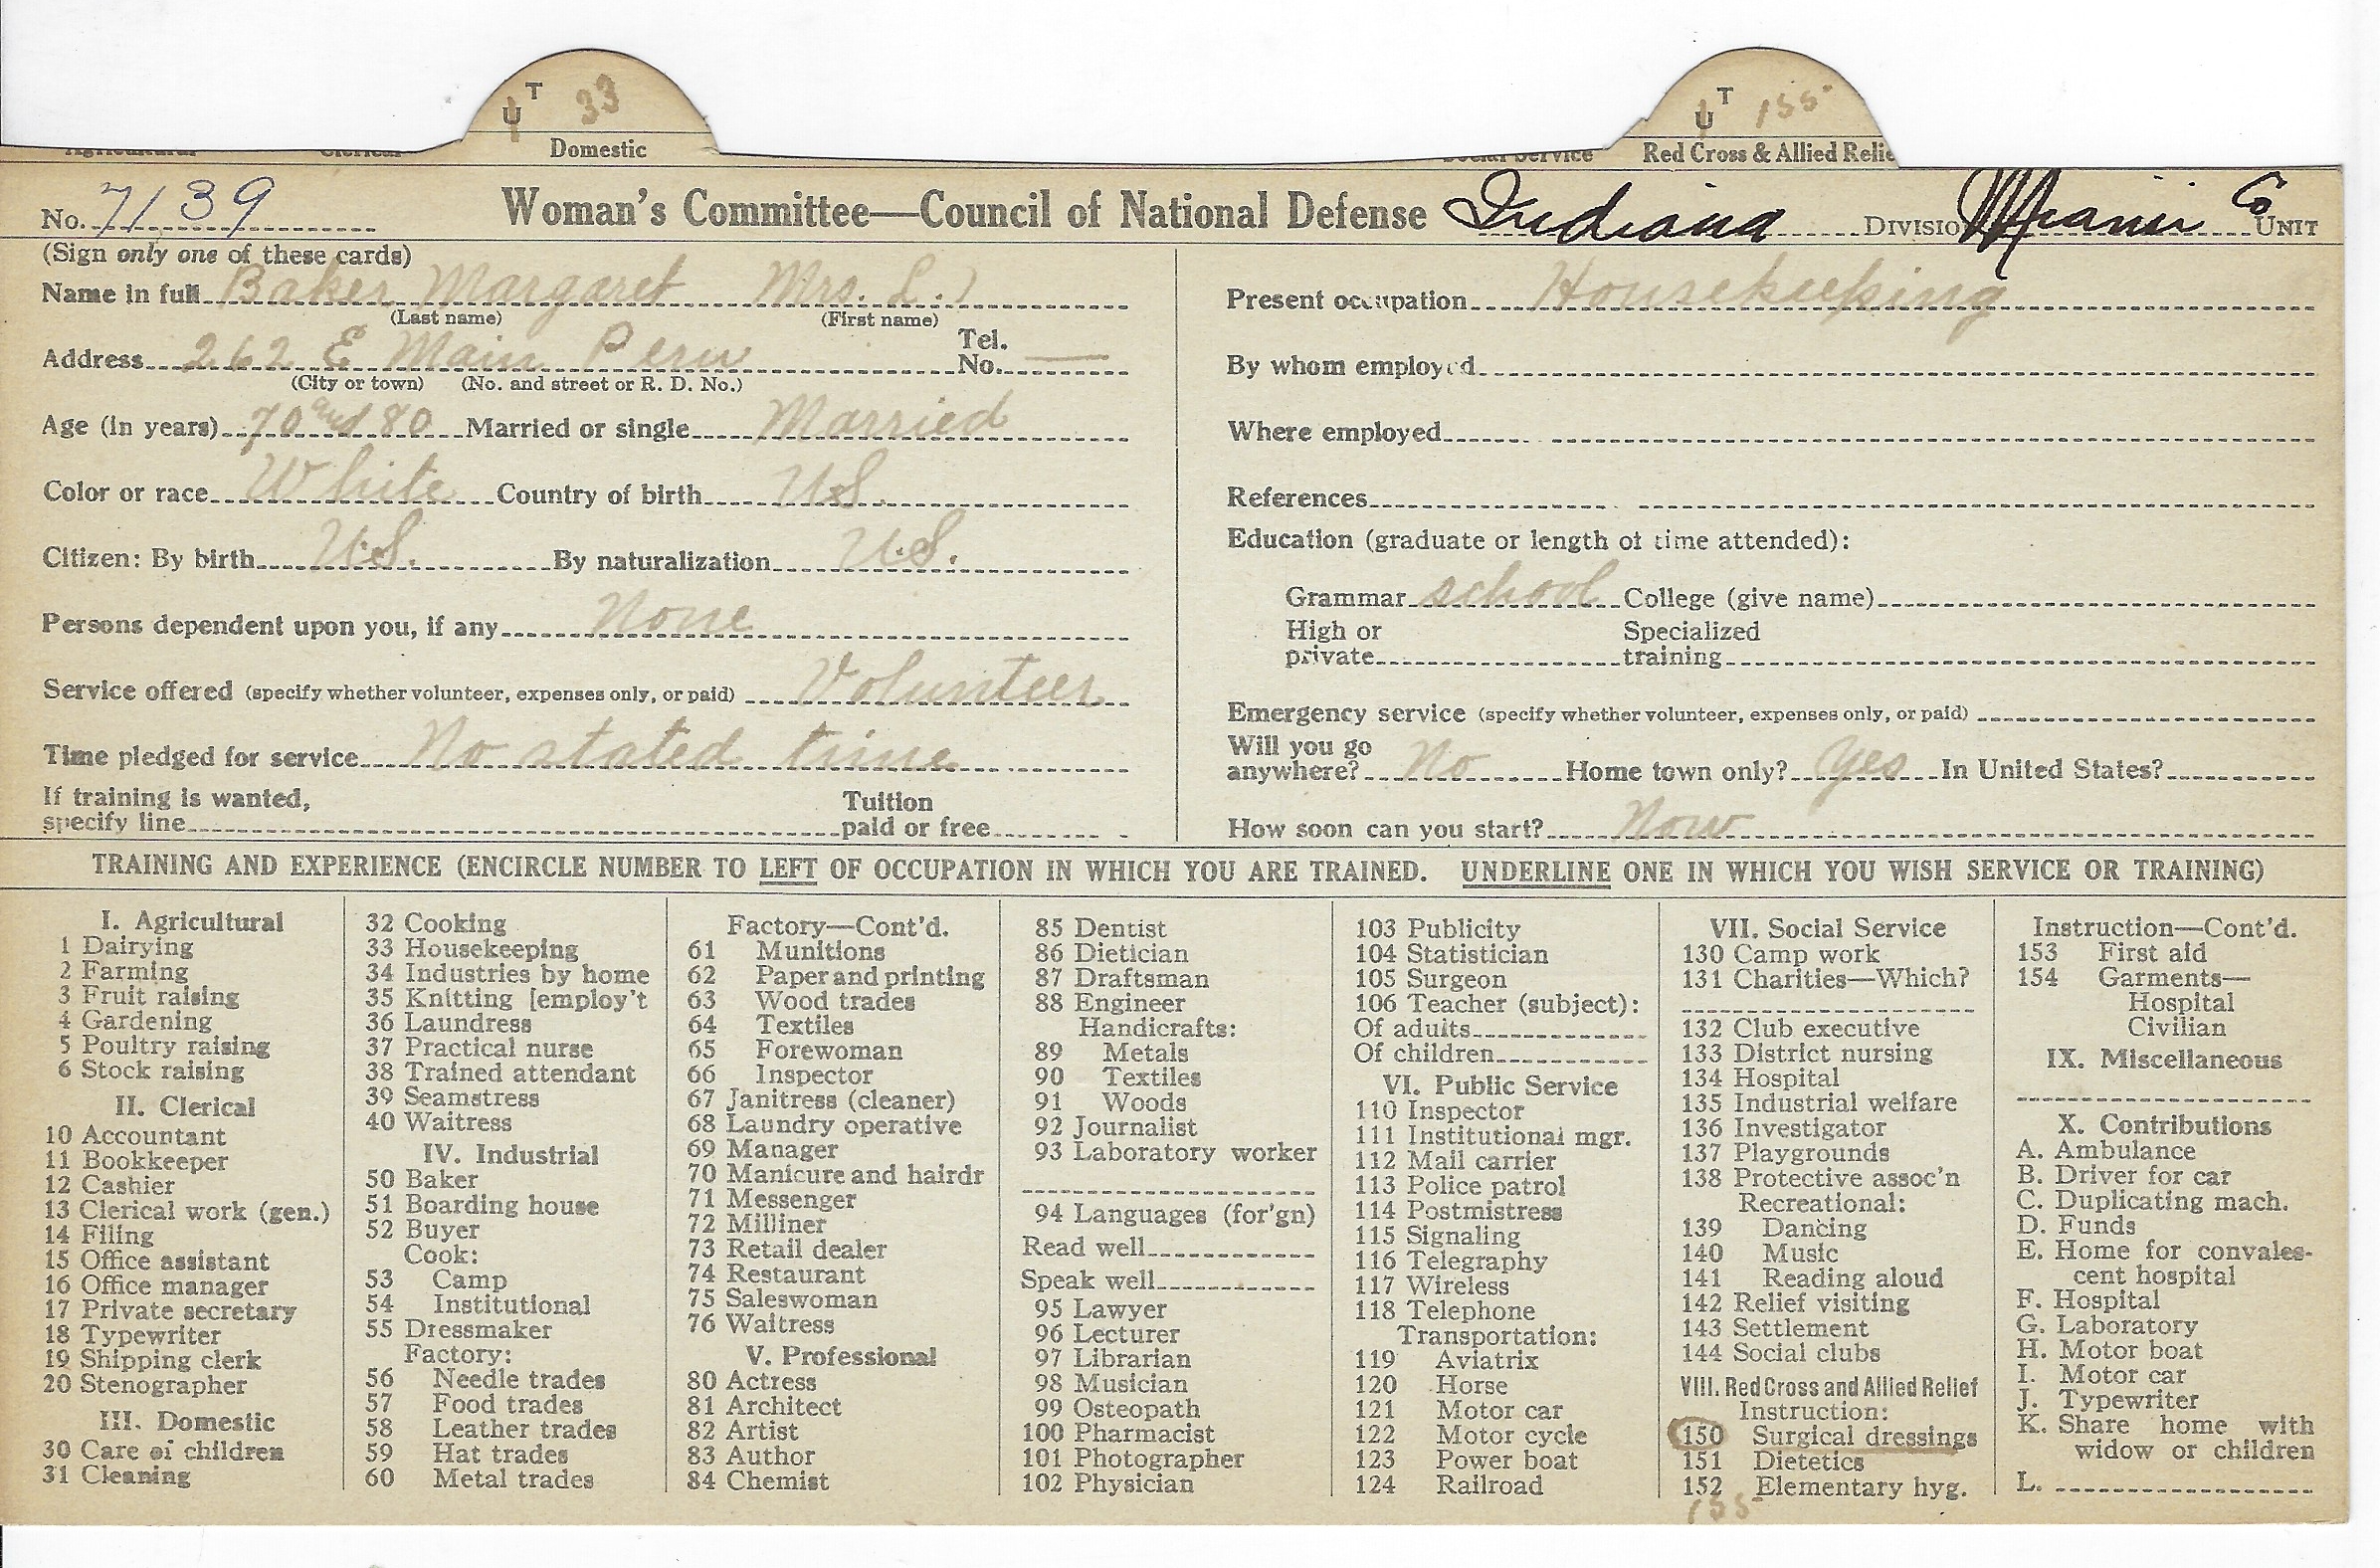 U T 33
U T 155
Domestic
Red Cross & Allied Relie
No. 7139 Woman's Committee—Council of National Defense Indiana Division Miami Co Unit
(Sign only one of these cards)
Name in full Baker Margaret Mrs. L.)
(Last name) (First name)
Address 262 E Main Peru Tel. No. —
(City or town) (No. and street or R. D. No.)
Age (in years) 70 and 80 Married or single Married
Color or race White Country of birth U.S.
Citizen: By birth U.S. By naturalization U.S.
Persons dependent upon you, if any None
Service offered (specify whether volunteer, expenses only, or paid) Volunteer
Time pledged for service No stated time
If training is wanted,
specify line Tuition paid or free
Present occupation Housekeeping
By whom employed
Where employed
References
Education (graduate or length of time attended):
Grammar school College (give name)
High or private Specialized training
Emergency service (specify whether volunteer, expenses only, or paid)
Will you go anywhere? No Home town only? Yes In United States?
How soon can you start? Now
TRAINING AND EXPERIENCE (ENCIRCLE NUMBER TO LEFT OF OCCUPATION IN WHICH YOU ARE TRAINED. UNDERLINE ONE IN WHICH YOU WISH SERVICE OR TRAINING)
I. Agricultural
1 Dairying
2 Farming
3 Fruit raising
4 Gardening
5 Poultry raising
6 Stock raising
II. Clerical
10 Accountant
11 Bookkeeper
12 Cashier
13 Clerical work (gen.)
14 Filing
15 Office assistant
16 Office manager
17 Private secretary
18 Typewriter
19 Shipping clerk
20 Stenographer
III. Domestic
30 Care of children
31 Cleaning
32 Cooking
33 Housekeeping
34 Industries by home
35 Knitting [employ't
36 Laundress
37 Practical nurse
38 Trained attendant
39 Seamstress
40 Waitress
IV. Industrial
50 Baker
51 Boarding house
52 Buyer
Cook:
53 Camp
54 Institutional
55 Dressmaker
Factory:
56 Needle trades
57 Food trades
58 Leather trades
59 Hat trades
60 Metal trades
Factory—Cont'd.
61 Munitions
62 Paper and printing
63 Wood trades
64 Textiles
65 Forewoman
66 Inspector
67 Janitress (cleaner)
68 Laundry operative
69 Manager
70 Manicure and hairdr
71 Messenger
72 Milliner
73 Retail dealer
74 Restaurant
75 Saleswoman
76 Waitress
V. Professional
80 Actress
81 Architect
82 Artist
83 Author
84 Chemist
85 Dentist
86 Dietician
87 Draftsman
88 Engineer
Handicrafts:
89 Metals
90 Textiles
91 Woods
92 Journalist
93 Laboratory worker
94 Languages (for'gn)
Read well
Speak well
95 Lawyer
96 Lecturer
97 Librarian
98 Musician
99 Osteopath
100 Pharmacist
101 Photographer
102 Physician
103 Publicity
104 Statistician
105 Surgeon
106 Teacher (subject):
Of adults
Of children
VI. Public Service
110 Inspector
111 Institutional mgr.
112 Mail carrier
113 Police patrol
114 Postmistress
115 Signaling
116 Telegraphy
117 Wireless
118 Telephone
Transportation:
119 Aviatrix
120 Horse
121 Motor car
122 Motor cycle
123 Power boat
124 Railroad
VII. Social Service
130 Camp work
131 Charities—Which?
132 Club executive
133 District nursing
134 Hospital
135 Industrial welfare
136 Investigator
137 Playgrounds
138 Protective assoc'n
Recreational:
139 Dancing
140 Music
141 Reading aloud
142 Relief visiting
143 Settlement
144 Social clubs
VIII. Red Cross and Allied Relief
Instruction:
150 Surgical dressings
151 Dietetics
152 Elementary hyg.
155
Instruction—Cont'd.
153 First aid
154 Garments—
Hospital
Civilian
IX. Miscellaneous
X. Contributions
A. Ambulance
B. Driver for car
C. Duplicating mach.
D. Funds
E. Home for convales-
cent hospital
F. Hospital
G. Laboratory
H. Motor boat
I. Motor car
J. Typewriter
K. Share home with
widow or children
L.